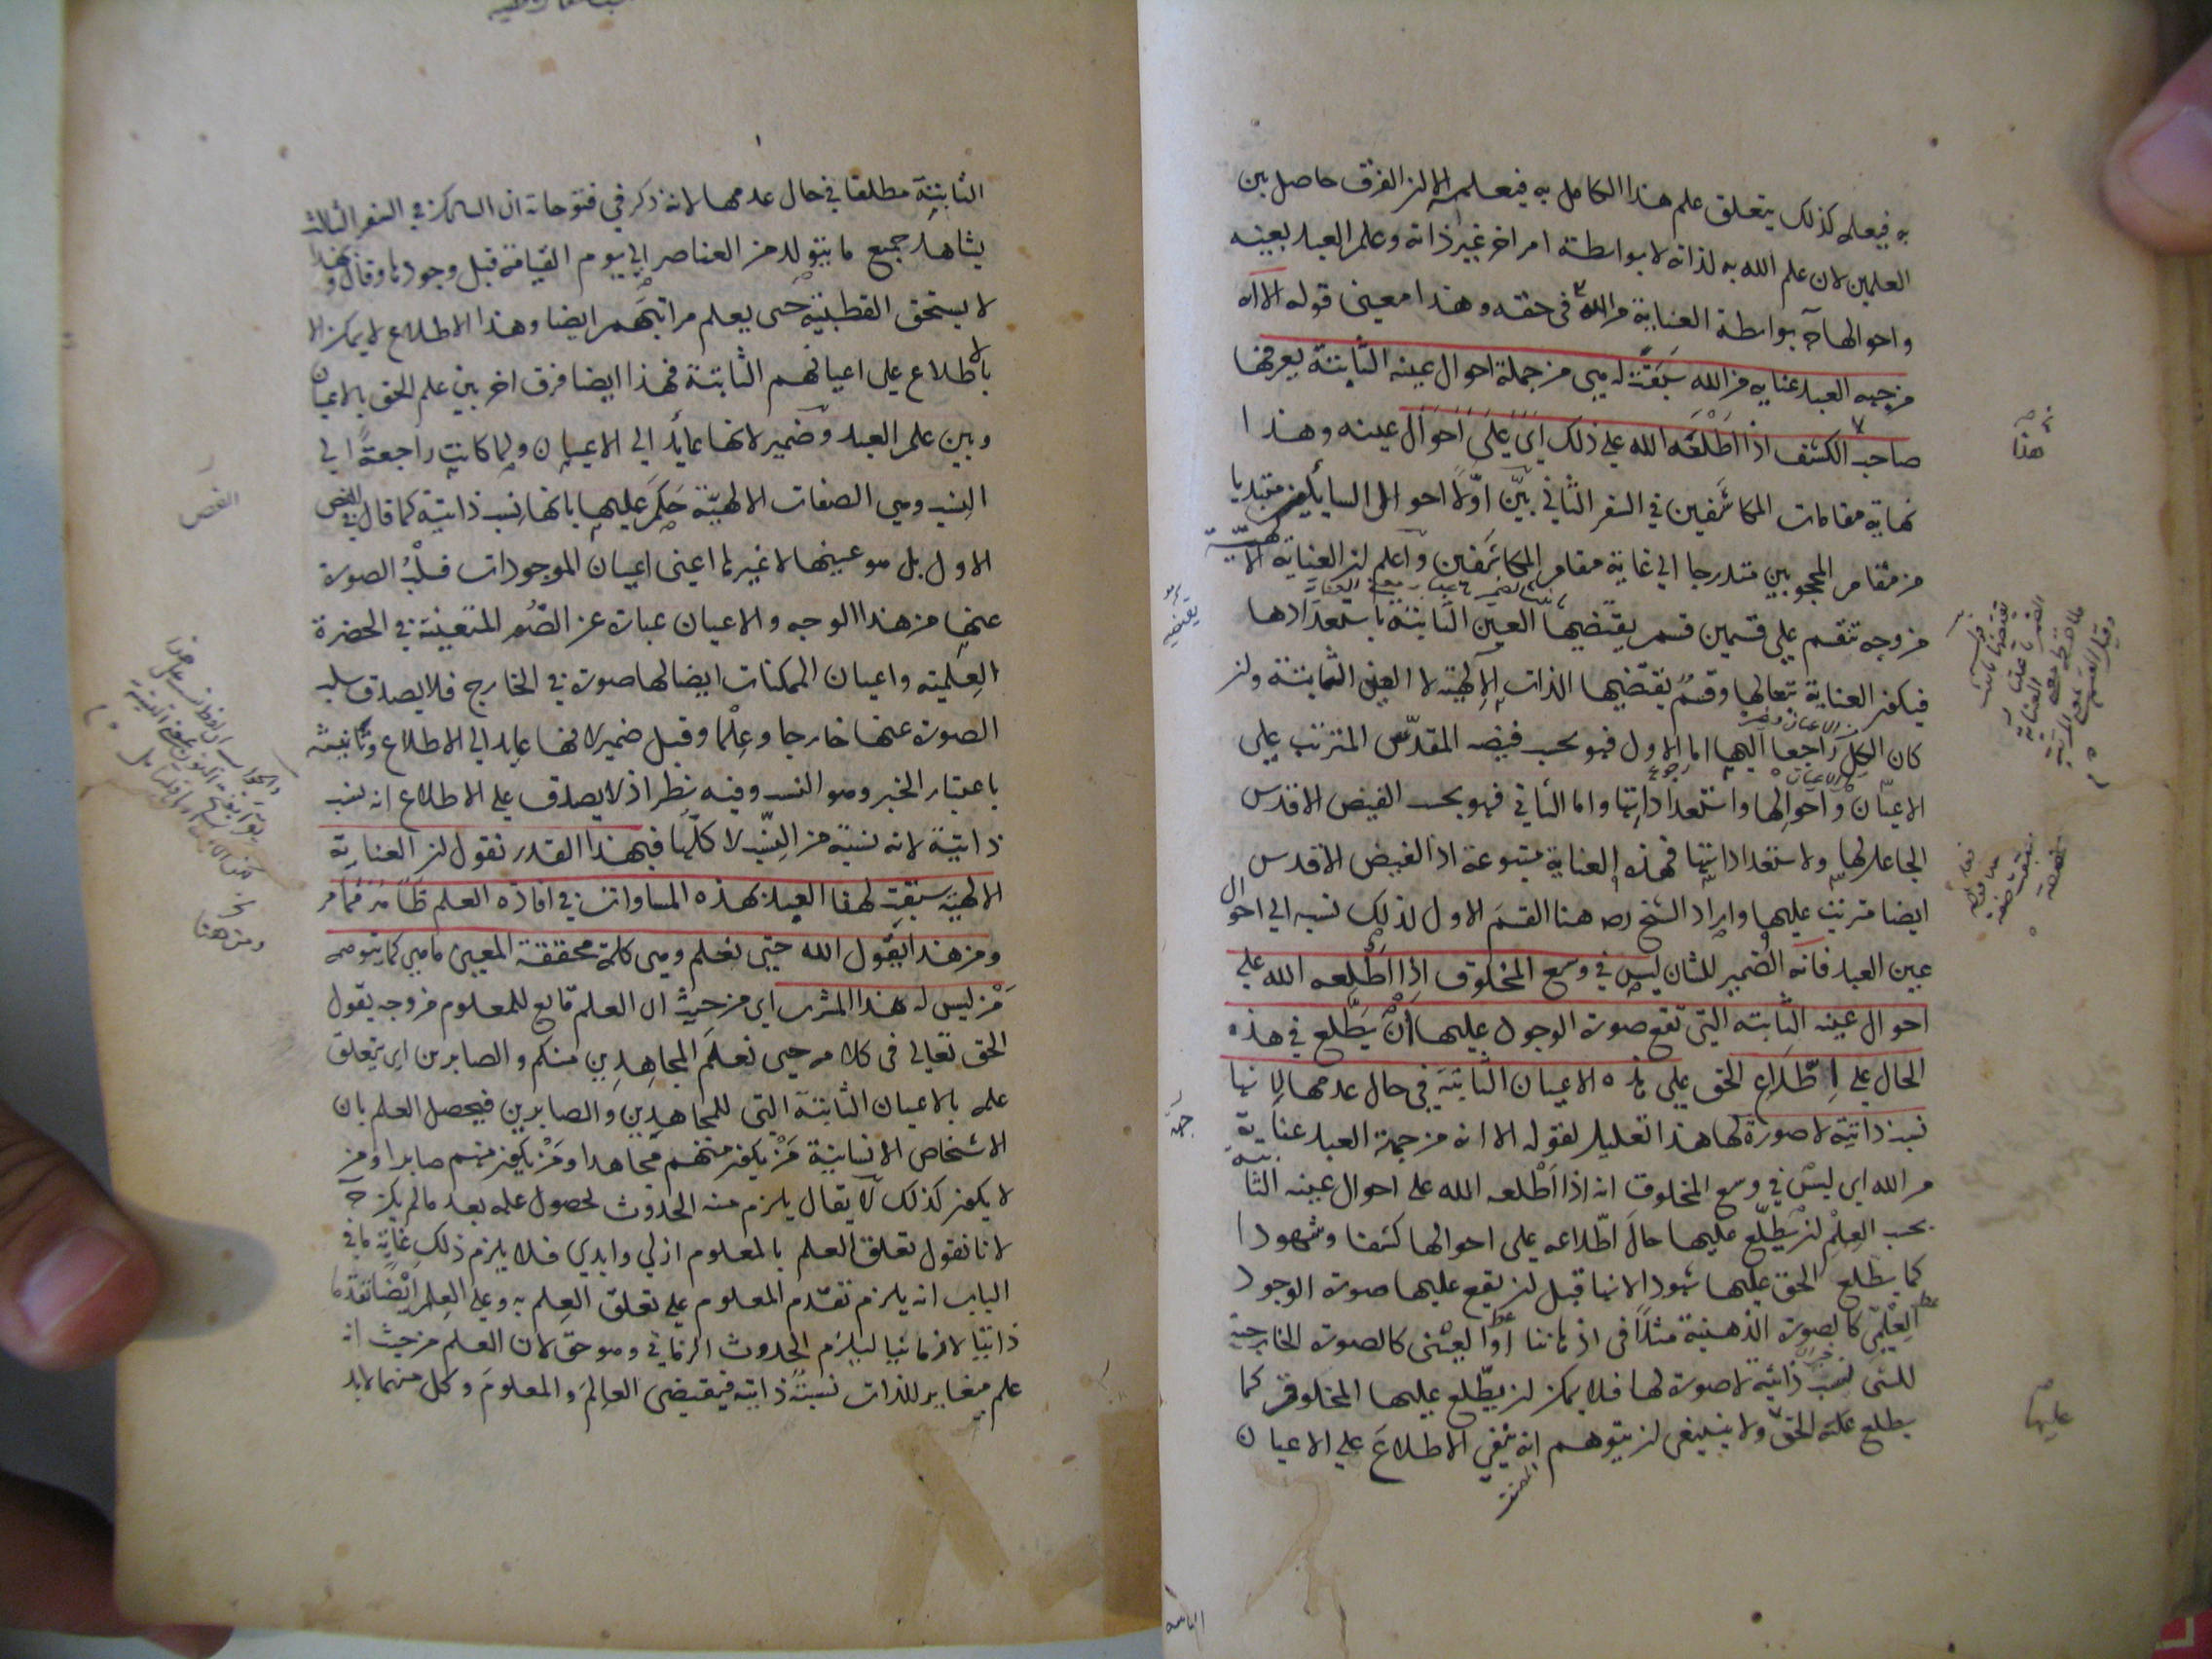 به فيعلم كذلك يتعلق علم هذا الكامل به فيعلمه الا ان الفرق حاصل بين
العلمين لان علم الله به لذاته لا بواسطة امر اخر غير ذاته وعلم العبد بعينه
واحوالها بواسطة العناية من الله في حقه وهذا معنى قوله الا انه
من جهة العبد عناية من الله سبقت له هي من جملة احوال عينه الثابتة يعرفها
صاحب الكشف اذا اطلعه الله على ذلك اي على احوال عينه وهذا
نهاية مقامات المكاشفين في السفر الثاني بين اولا احوال السايلين مبتديا
من مقام المحجوبين متدرجا الى غاية مقام المكاشفين واعلم ان العناية الالهية
من وجه تنقسم على قسمين قسم يقتضيها العين الثابتة باستعدادها
فيكون العناية تبعا لها وقسم يقتضيها الذات الالهية لا العين الثابتة وان
كان الكل راجعا اليها اما الاول فهو بحسب فيضه المقدس المترتب على
الاعيان واحوالها واستعداداتها واما الثاني فهو بحسب الفيض الاقدس
الجاعل لها ولاستعداداتها فهذه العناية متبوعة اذ الفيض الاقدس
ايضا مترتب عليها وايراد الشيخ رضه هنا القسم الاول لذلك نسبه الى احوال
عين العبد فانه الضمير للشان ليس في وسع المخلوق اذا اطلعه الله على
احوال عينه الثابتة التي تقع صورة الوجود عليها ان يطلع في هذه
الحال على اطلاع الحق على هذه الاعيان الثابتة في حال عدمها لانها
نسب ذاتية لا صورة لها هذا تعليل لقوله الا انه من جهة العبد عناية
من الله اي ليس في وسع المخلوق انه اذا اطلعه الله على احوال عينه الثابتة
بحسب العلم ان يطلع عليها حال اطلاعه على احوالها كشفا وشهودا
كما يطلع الحق عليها شهودا لانها قبل ان يقع عليها صورة الوجود
العلمي كالصورة الذهنية مثلا في اذهاننا او العيني كالصورة الخارجية
للشي نسب ذاتية لا صورة لها فلا يمكن ان يطلع عليها المخلوق كما
يطلع عليه الحق ولا ينبغي ان يتوهم انه ينفي الاطلاع على الاعيان
هذا
يقتضيه
عليها
الثابتة مطلقا في حال عدمها لانه ذكر في فتوحاته ان السالك في السفر الثالث
يشاهد جميع ما يتولد من العناصر الى يوم القيامة قبل وجودها وقال وبهذا
لا يستحق القطبية حتى يعلم مراتبهم ايضا وهذا الاطلاع لا يمكن الا
بالاطلاع على اعيانهم الثابتة فهذا ايضا فرق اخر بين علم الحق بالاعيان
وبين علم العبد وضمير لانها عايد الى الاعيان ولما كانت راجعة الى
النسب وهي الصفات الالهية حكم عليها بانها نسب ذاتية كما قال في الفص
الاول بل هو عينها لا غيرها اعني اعيان الموجودات فسلب الصورة
عنها من هذا الوجه والاعيان عبارة عن الصور المتعينة في الحضرة
العلمية واعيان الممكنات ايضا لها صورة في الخارج فلا يصدق سلب
الصورة عنها خارجا وعلما وقيل ضمير لانها عايد الى الاطلاع وتانيثه
باعتبار الخبر وهو النسب وفيه نظر اذ لا يصدق على الاطلاع انه نسب
ذاتية لانه نسبة من النسب لا كلها فبهذا القدر نقول ان العناية
الالهية سبقت لهذا العبد بهذه المساواة في افادة العلم
ومن هنا يقول الله حتى نعلم وهي كلمة محققة المعنى ما هي كما يتوهمه
من ليس له هذا المشرب اي من حيث ان العلم تابع للمعلوم من وجه يقول
الحق تعالى في كلامه حتى نعلم المجاهدين منكم والصابرين اي يتعلق
علمه بالاعيان الثابتة التي للمجاهدين والصابرين فيحصل العلم بان
الاشخاص الانسانية من يكون منهم مجاهدا ومن يكون منهم صابرا ومن
لا يكون كذلك لا يقال يلزم منه الحدوث لحصول علمه بعد ما لم يكن
لانا نقول تعلق العلم بالمعلوم ازلي وابدي فلا يلزم ذلك غاية ما في
الباب انه يلزم تقدم المعلوم على تعلق العلم به وعلى العلم ايضا تقدما
ذاتيا لا زمانيا ليلزم الحدوث الزماني وهو حق لان العلم من حيث انه
علم مغاير للذات نسبة ذاتية فيقتضي العالم والمعلوم وكل منهما لابد
الفص